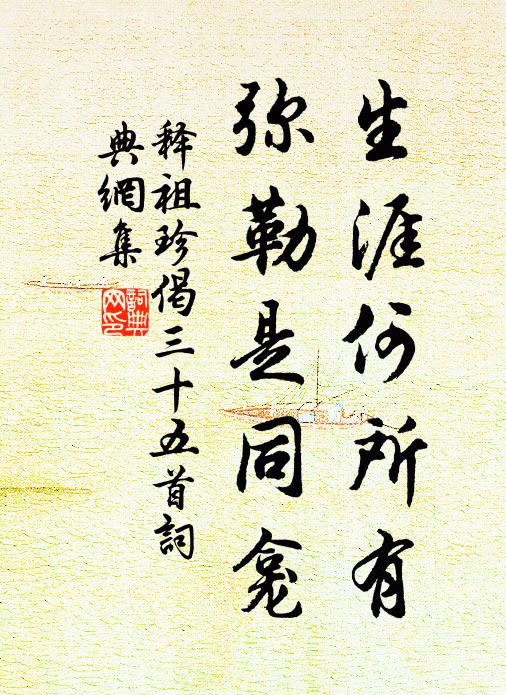 生涯何所有
弥勒是同龛
释祖珍偈三十五首詞
典網集
詞典网印